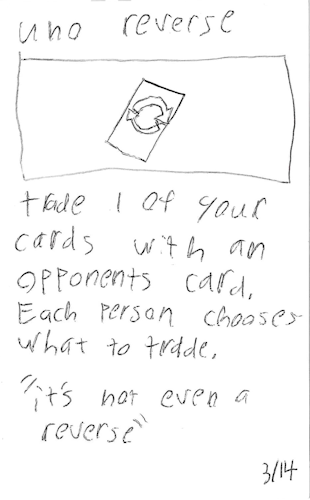 uno reverse
trade 1 of your
cards with an
opponents card.
Each person chooses
what to trade.
"it's not even a
reverse"
3/14